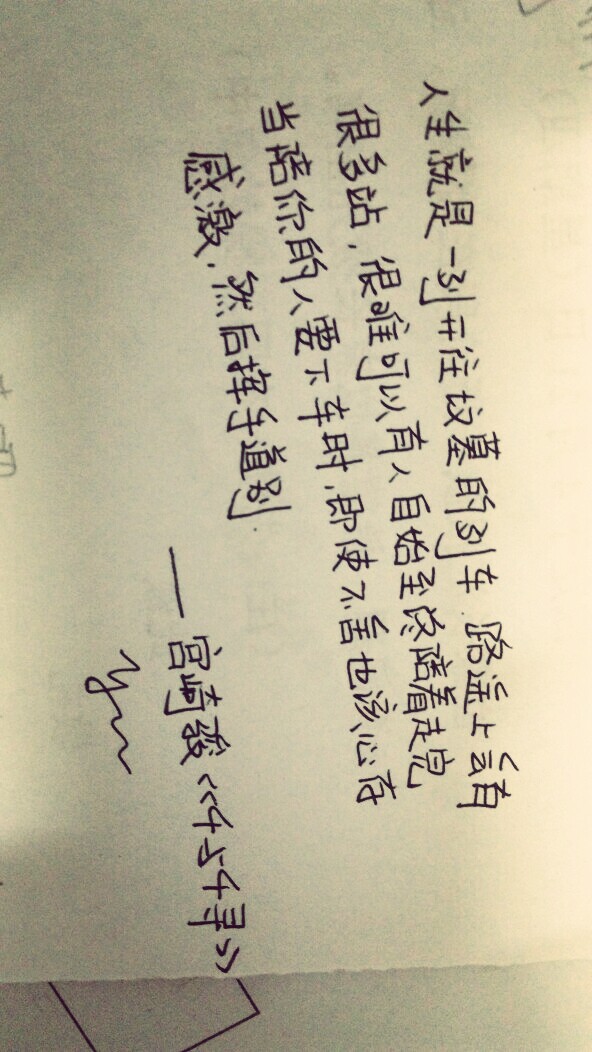 人生就是一列开往坟墓的列车,路途上会有
很多站,很难可以有人自始至终陪着走完
当陪你的人要下车时,即使不舍也该心存
感激,然后挥手道别.
——宫崎骏《千与千寻》